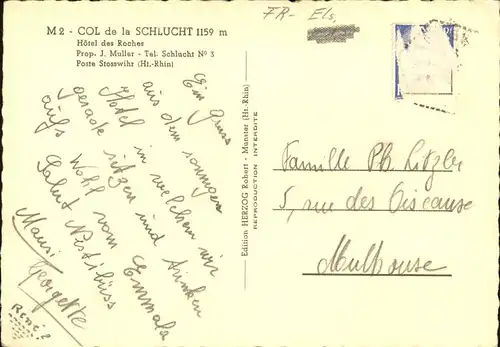 M 2 - COL de la SCHLUCHT 1159 m
Hôtel des Roches
Prop. J. Muller - Tel. Schlucht Nº 3
Poste Stosswihr (Ht.-Rhin)
FR- Els,
Ein Gruss
aus dem sonnigen
Hotel in welchem wir
gerade sitzen und trinken
aufs Wohl vom Emmala
Salut
Mausi
Georgette
René
Edition HERZOG Robert - Munster (Ht.-Rhin)
REPRODUCTION INTERDITE
Famille Ph. Litzler
5, rue des Oiseaux
Mulhouse